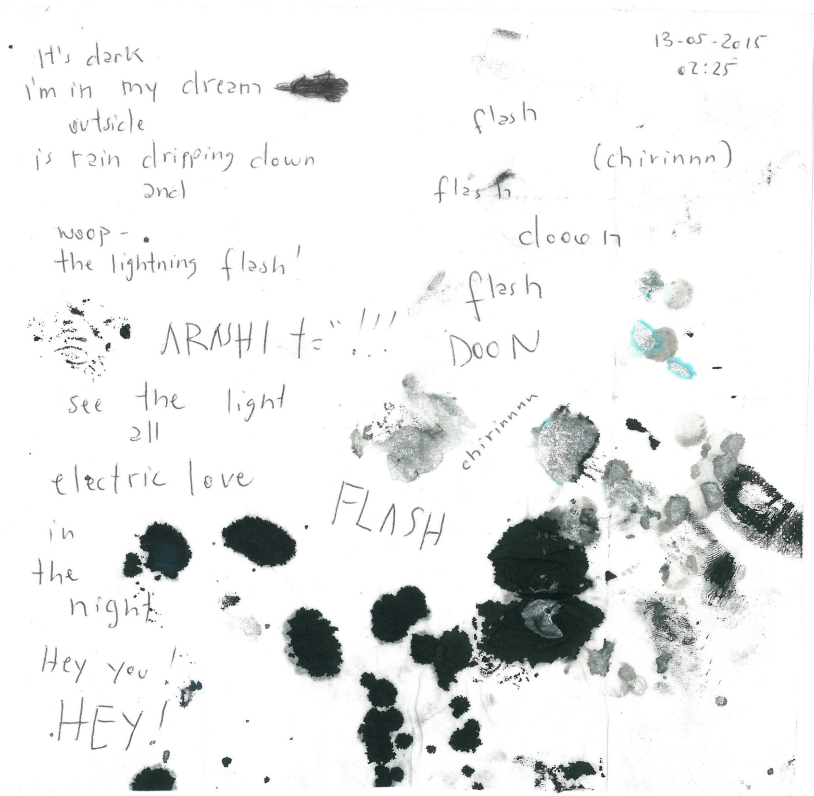 It's dark
i'm in my dream
outside
is rain dripping down
and
woop-.
the lightning flash!
see the light
all
electric love
in
the
night
Hey you!
HEY!
13-05-2015
02:25
flash
(chirinnn)
flash
dooon
flash
DOON
chirinnnn
FLASH